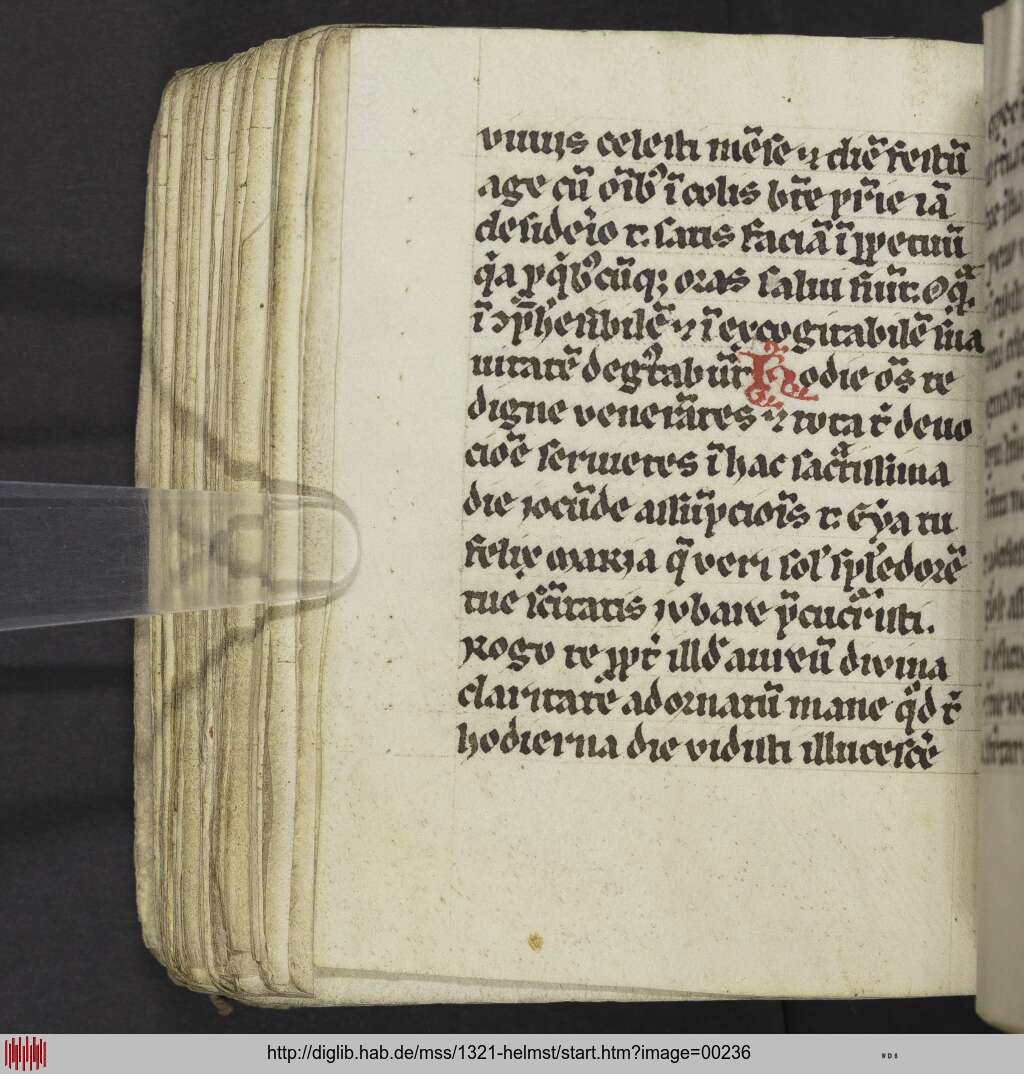 viuijs celesti mēse ⁊ diē festū
age cū oīb⁹ īcolis bt̄e pr̄ie iā
desiderio t. satis faciā ī ꝑpetuū
q̇a p q̇b⁹cūqꝫ oras salui fiūt. Oq̄
ī ɔp̄hensibilē ⁊ ī excogitabilē sua
uitatē degᵒtabūt Hodie oēs te
digne venerātes ⁊ tota t̄ deuo
cioē seruietes ī hac sāctissima
die iocūde assūpciois t. Eya tu
felix maria q̄ veri sol' splēdorē
tue scītatis iubare p̄cucr̄risti.
Rogo te ꝑpt̄ illd̄ aureū diuina
claritate adornatū mane qd̄ t̄
hodierna die vidisti illucescē
http://diglib.hab.de/mss/1321-helmst/start.htm?image=00236